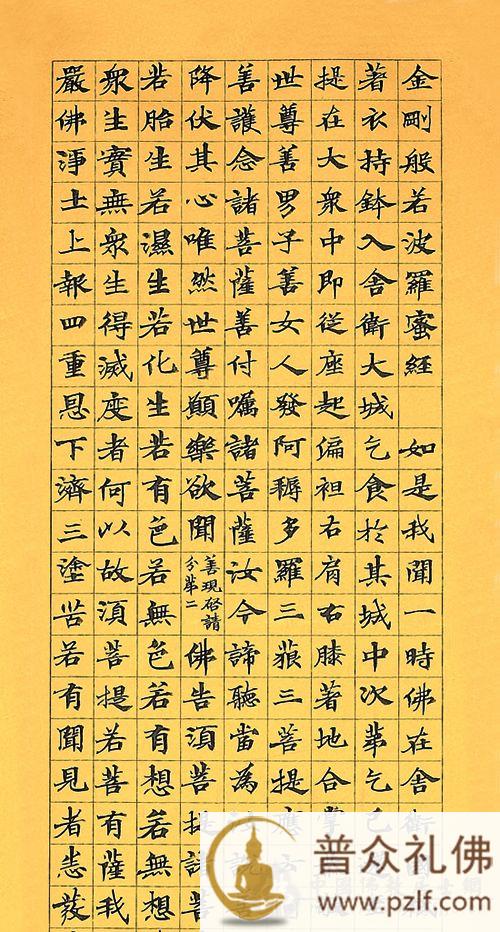 金剛般若波羅蜜經 如是我聞一時佛在舍衛
著衣持鉢入舍衛大城乞食於其城中次苐乞已
提在大衆中即從座起偏袒右肩右膝著地合掌
世尊善男子善女人發阿耨多羅三藐三菩提應
善護念諸菩薩善付囑諸菩薩汝今諦聽當為
降伏其心唯然世尊願樂欲聞善現啓請分苐二佛告須菩提諸菩
若胎生若濕生若化生若有色若無色若有想若無想
衆生實無衆生得滅度者何以故須菩提若菩有薩我
嚴佛淨土上報四重恩下濟三塗苦若有聞見者悉發
普众礼佛
www.pzlf.com